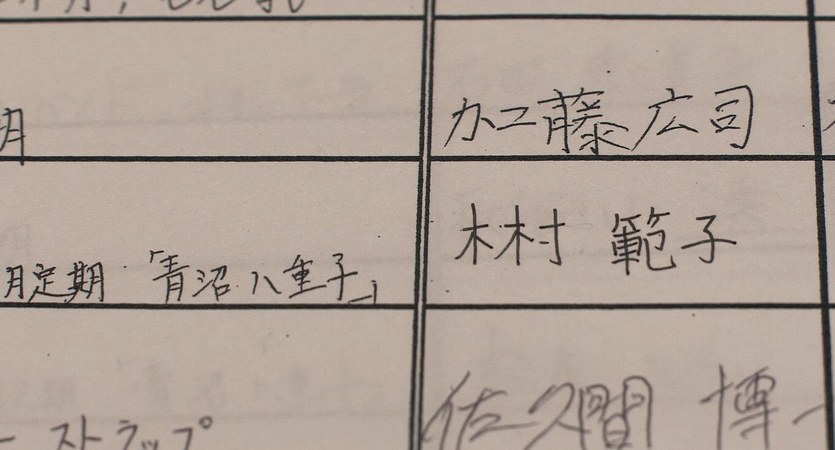 加藤 広司
木村 範子
月定期 「青沼八重子」
佐久間 博一
ーストラップ